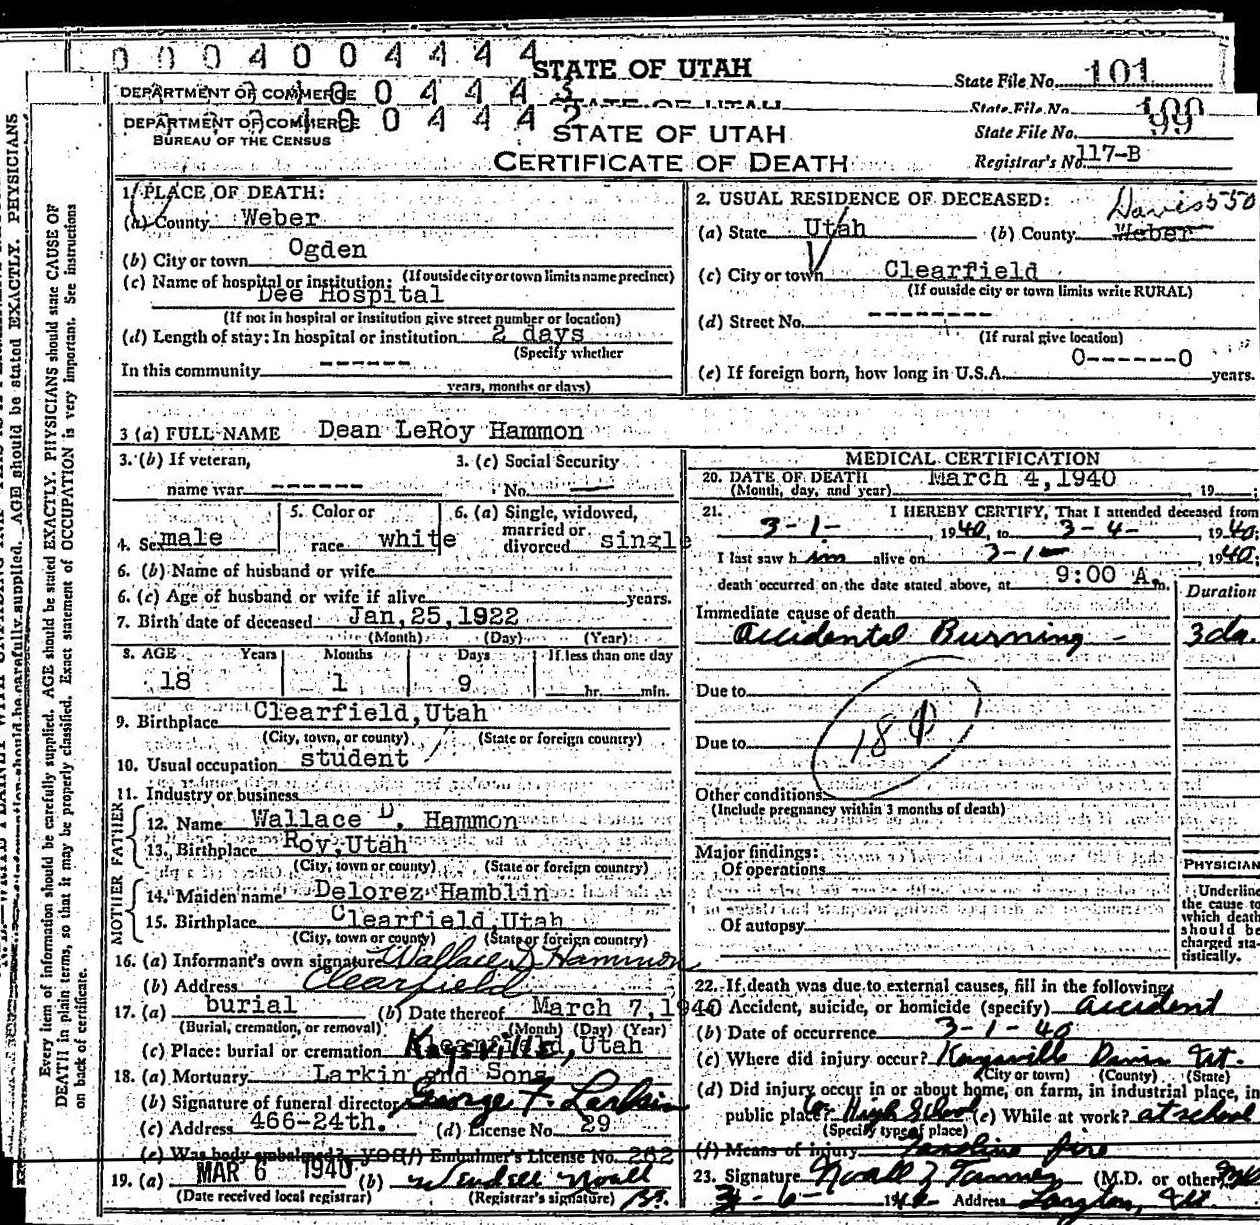 0 0 0 4 0 0 4 4 4 4
STATE OF UTAH
State File No. 101
DEPARTMENT OF COMMERCE
0 0 4 4 4 3
STATE OF UTAH
State File No. 100
DEPARTMENT OF COMMERCE
0 0 4 4 4 2
STATE OF UTAH
State File No. 99
BUREAU OF THE CENSUS
CERTIFICATE OF DEATH
Registrar's No. 117-B
1. PLACE OF DEATH:
(a) County Weber
(b) City or town Ogden
(If outside city or town limits name precinct)
(c) Name of hospital or institution:
Dee Hospital
(If not in hospital or institution give street number or location)
(d) Length of stay: In hospital or institution 2 days
(Specify whether
In this community ------
years, months or days)
2. USUAL RESIDENCE OF DECEASED:
Davis 550
(a) State Utah (b) County Weber
(c) City or town Clearfield
(If outside city or town limits write RURAL)
(d) Street No. ---------
(If rural give location)
0------0
(e) If foreign born, how long in U.S.A. years.
3 (a) FULL NAME Dean LeRoy Hammon
3. (b) If veteran,
name war ------
3. (c) Social Security
No. —
4. Sex male
5. Color or
race white
6. (a) Single, widowed,
married or
divorced single
6. (b) Name of husband or wife
6. (c) Age of husband or wife if alive years.
7. Birth date of deceased Jan, 25, 1922
(Month) (Day) (Year)
8. AGE Years Months Days If less than one day
18 1 9 hr. min.
9. Birthplace Clearfield, Utah
(City, town, or county) (State or foreign country)
10. Usual occupation student
11. Industry or business
FATHER
12. Name Wallace D. Hammon
13. Birthplace Roy, Utah
(City, town or county) (State or foreign country)
MOTHER
14. Maiden name Delorez Hamblin
15. Birthplace Clearfield, Utah
(City, town or county) (State or foreign country)
16. (a) Informant's own signature Wallace D. Hammon
(b) Address Clearfield
17. (a) burial (b) Date thereof March 7, 1940
(Burial, cremation, or removal) (Month) (Day) (Year)
(c) Place: burial or cremation Kaysville, Utah
18. (a) Mortuary Larkin and Sons
(b) Signature of funeral director George F. Larkin
(c) Address 466-24th. (d) License No. 29
(e) Was body embalmed? yes (f) Embalmer's License No. 262
19. (a) MAR 6 1940 (b) Wendell Noall
(Date received local registrar) (Registrar's signature)
MEDICAL CERTIFICATION
20. DATE OF DEATH March 4, 1940
(Month, day, and year) , 19 ;
21. I HEREBY CERTIFY, That I attended deceased from
3-1- , 1940, to 3-4- , 1940;
I last saw him alive on 3-1- , 1940;
death occurred on the date stated above, at 9:00 A. m.
Duration
Immediate cause of death
Accidental Burning - 3 da
Due to
181
Due to
Other conditions
(Include pregnancy within 3 months of death)
Major findings:
Of operations
Of autopsy
PHYSICIAN
Underline
the cause to
which death
should be
charged sta-
tistically.
22. If death was due to external causes, fill in the following:
Accident, suicide, or homicide (specify) accident
(b) Date of occurrence 3-1-40
(c) Where did injury occur? Kaysville Davis Ut.
(City or town) (County) (State)
(d) Did injury occur in or about home, on farm, in industrial place, in
public place? High School (e) While at work? at school
(Specify type of place)
(f) Means of injury Gasoline fire
23. Signature Noall Z Tanner (M.D. or other)
3-6- 1940 Address Layton, Ut.
Every item of information should be carefully supplied. AGE should be stated EXACTLY. PHYSICIANS should state CAUSE OF
DEATH in plain terms, so that it may be properly classified. Exact statement of OCCUPATION is very important. See instructions
on back of certificate.
should be carefully supplied. AGE should be stated EXACTLY. PHYSICIANS